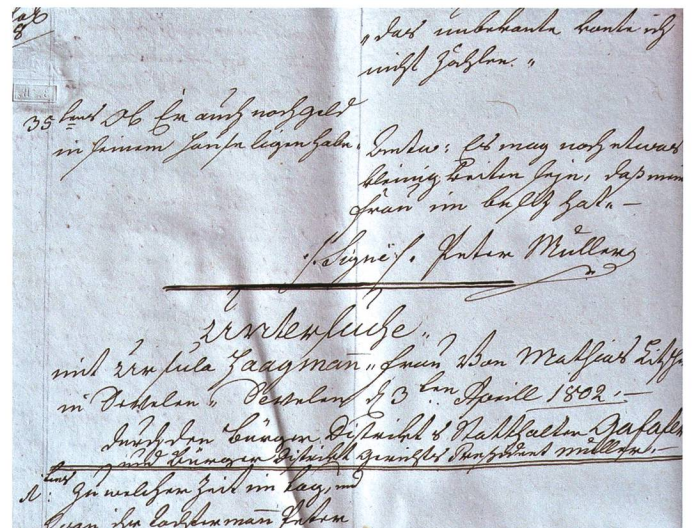 „das unbekante konte ich
nicht zählen."
35tens Ob Er auch noch geld
in seinem Hause ligen habe.
Antw: Es mag noch etwas
kleinigkeiten seje, daß mein
frau im besitz hat." —
/:Signé:/. Peter Müller
Untersuche.
mit Ursula Haagmañ, frau von Mathias
in Sevelen, Sevelen d 3ten Aprill 1802. —
durch den Bürger Districkt's Statthalter
und Bürger Districkt Gerichts President müller. —
1tens Zu welcher Zeit im tag, und
ihr Tochtermañ Peter